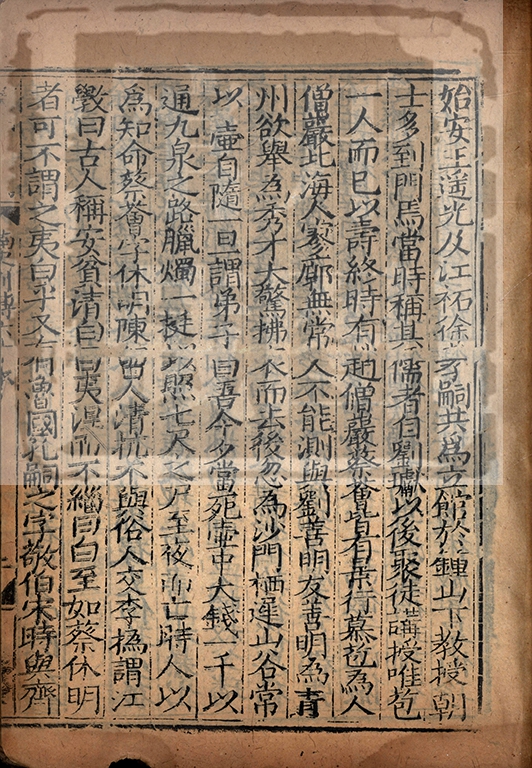 始安王遥光及江祏徐孝嗣共爲立館於鍾山下教授朝
士多到門焉當時稱其儒者自劉瓛以後聚徒講授唯苞
一人而已以壽終時有趙僧巖蔡薈皆有景行慕苞爲人
僧巖北海人寥廓無常人不能測與劉善明友善明爲青
州欲舉爲秀才大驚拂衣而去後忽爲沙門栖遲山谷常
以一壷自隨一旦謂弟子曰吾今夕當死壷中大錢一千以
通九泉之路臘燭一挺以照七尺之尸至夜而亡時人以
爲知命蔡薈字休明陳留人清抗不與俗人交李撝謂江
斆曰古人稱安貧清白曰夷涅而不緇曰白至如蔡休明
者可不謂之夷白乎又有魯國孔嗣之字敬伯宋時與齊